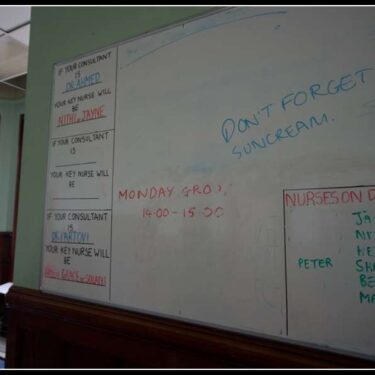 IF YOUR CONSULTANT
IS
DR. AHMED
YOUR KEY NURSE WILL
BE
NITHI or JAYNE
IF YOUR CONSULTANT
IS
YOUR KEY NURSE WILL
BE
IF YOUR CONSULTANT
IS
YOUR KEY NURSE WILL
BE
GRACE or
DON'T FORGET
SUNCREAM.
MONDAY
14:00 - 15:00
NURSES ON D
PETER